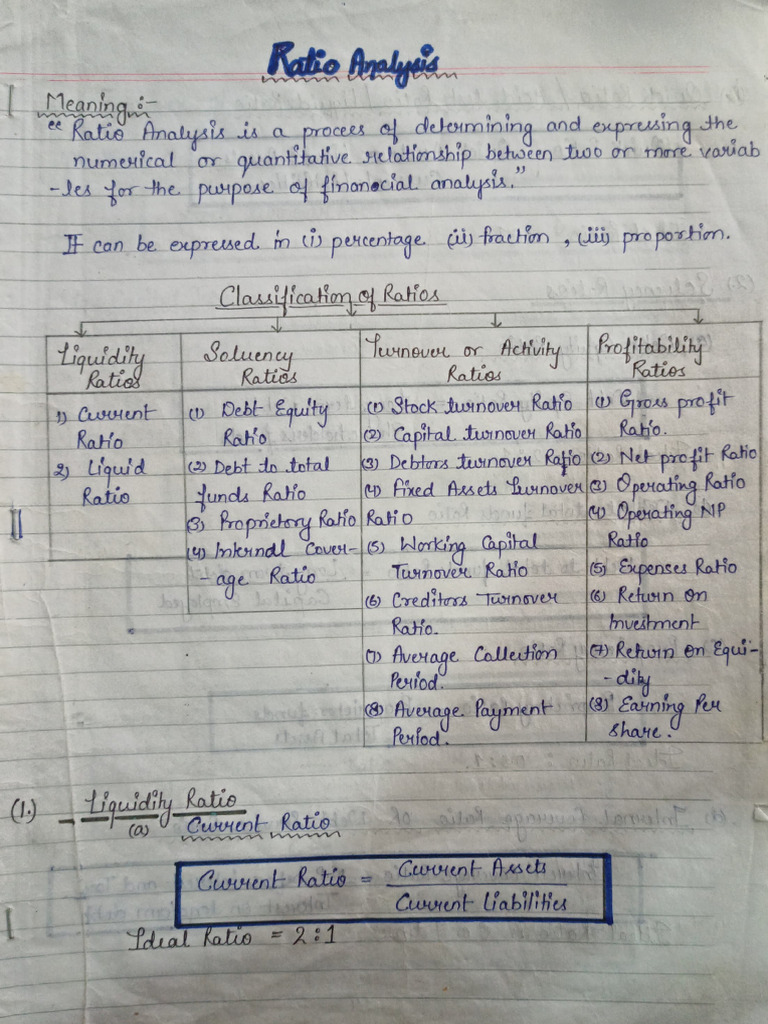 Ratio Analysis
Meaning :-
"Ratio Analysis is a procees of determining and expressing the
numerical or quantitative relationship between two or more variab
-les for the purpose of finanocial analysis."
It can be expressed in (i) percentage (ii) fraction, (iii) proportion.
Classification of Ratios
Liquidity
Ratios
1) Current
Ratio
2) Liquid
Ratio
Soluency
Ratios
(1) Debt Equity
Ratio
(2) Debt to total
funds Ratio
(3) Proprietory Ratio
(4) Internal Cover-
-age Ratio
Turnover or Activity
Ratios
(1) Stock turnover Ratio
(2) Capital turnover Ratio
(3) Debtors turnover Ratio
(4) Fixed Assets Turnover
Ratio
(5) Working Capital
Turnover Ratio
(6) Creditors Turnover
Ratio.
(7) Average Collection
Period.
(8) Average Payment
Period.
Profitability
Ratios
(1) Gross profit
Ratio.
(2) Net profit Ratio
(3) Operating Ratio
(4) Operating NP
Ratio
(5) Expenses Ratio
(6) Return on
Investment
(7) Return on Equi-
-dity
(8) Earning Per
share.
(1.) → Liquidity Ratio
(a) Current Ratio
Current Ratio = Current Assets
Current Liabilities
Ideal Ratio = 2:1